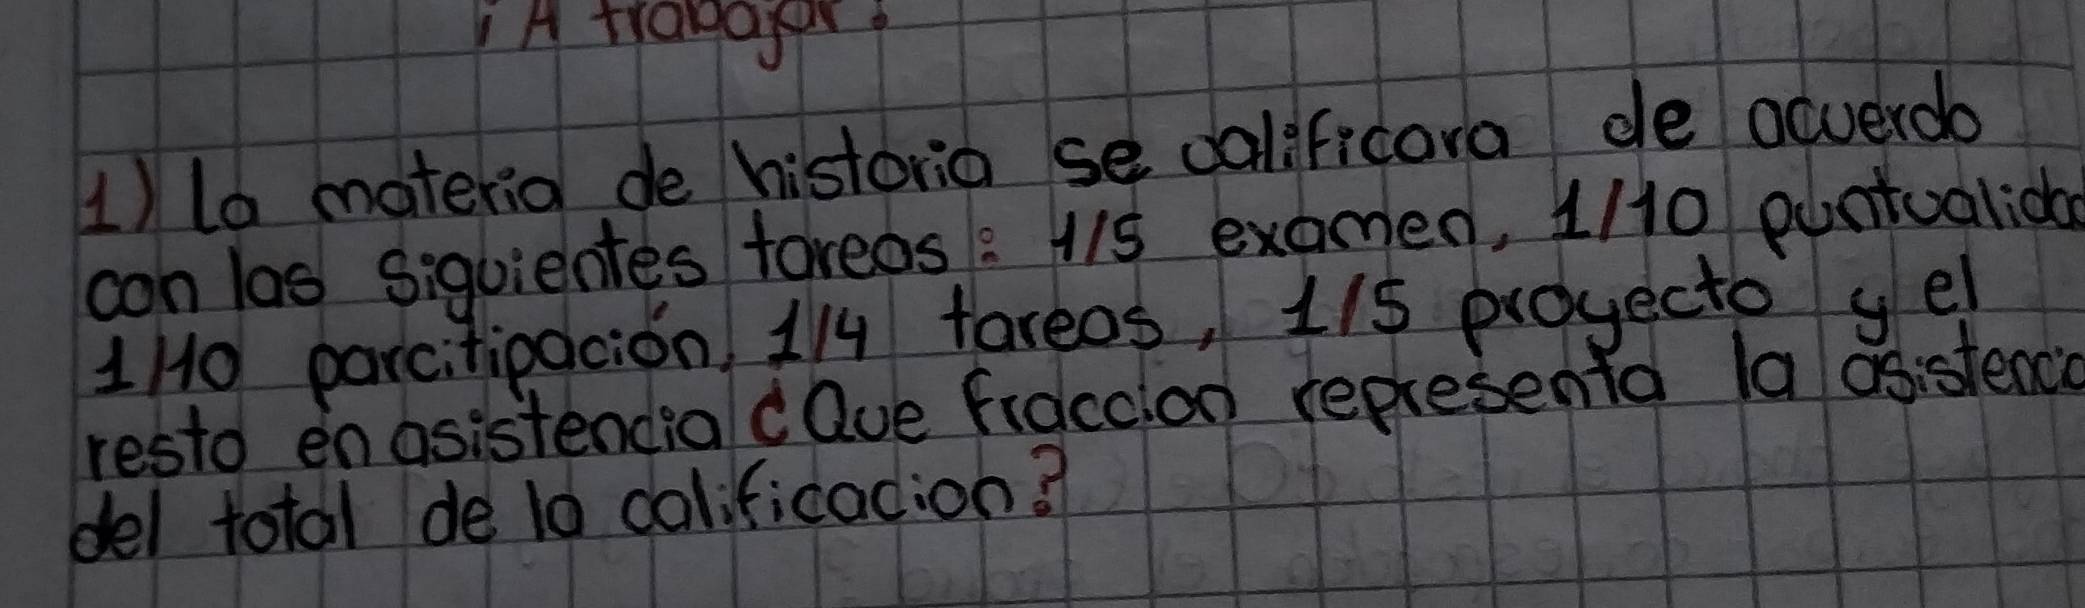 ¡A trabajar!
1) La materia de historia se calificara de acuerdo
con las siguientes tareas: 1/5 examen, 1/10 puntualidad
1/10 parcitipación, 1/4 tareas, 1/5 proyecto y el
resto en asistencia ¿Que fraccion representa la asistencia
del total de la calificacion?